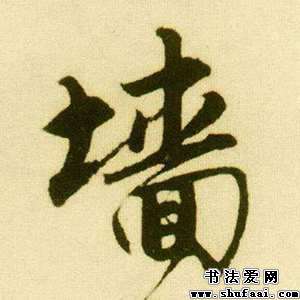 墙
书法爱网
www.shufaai.com